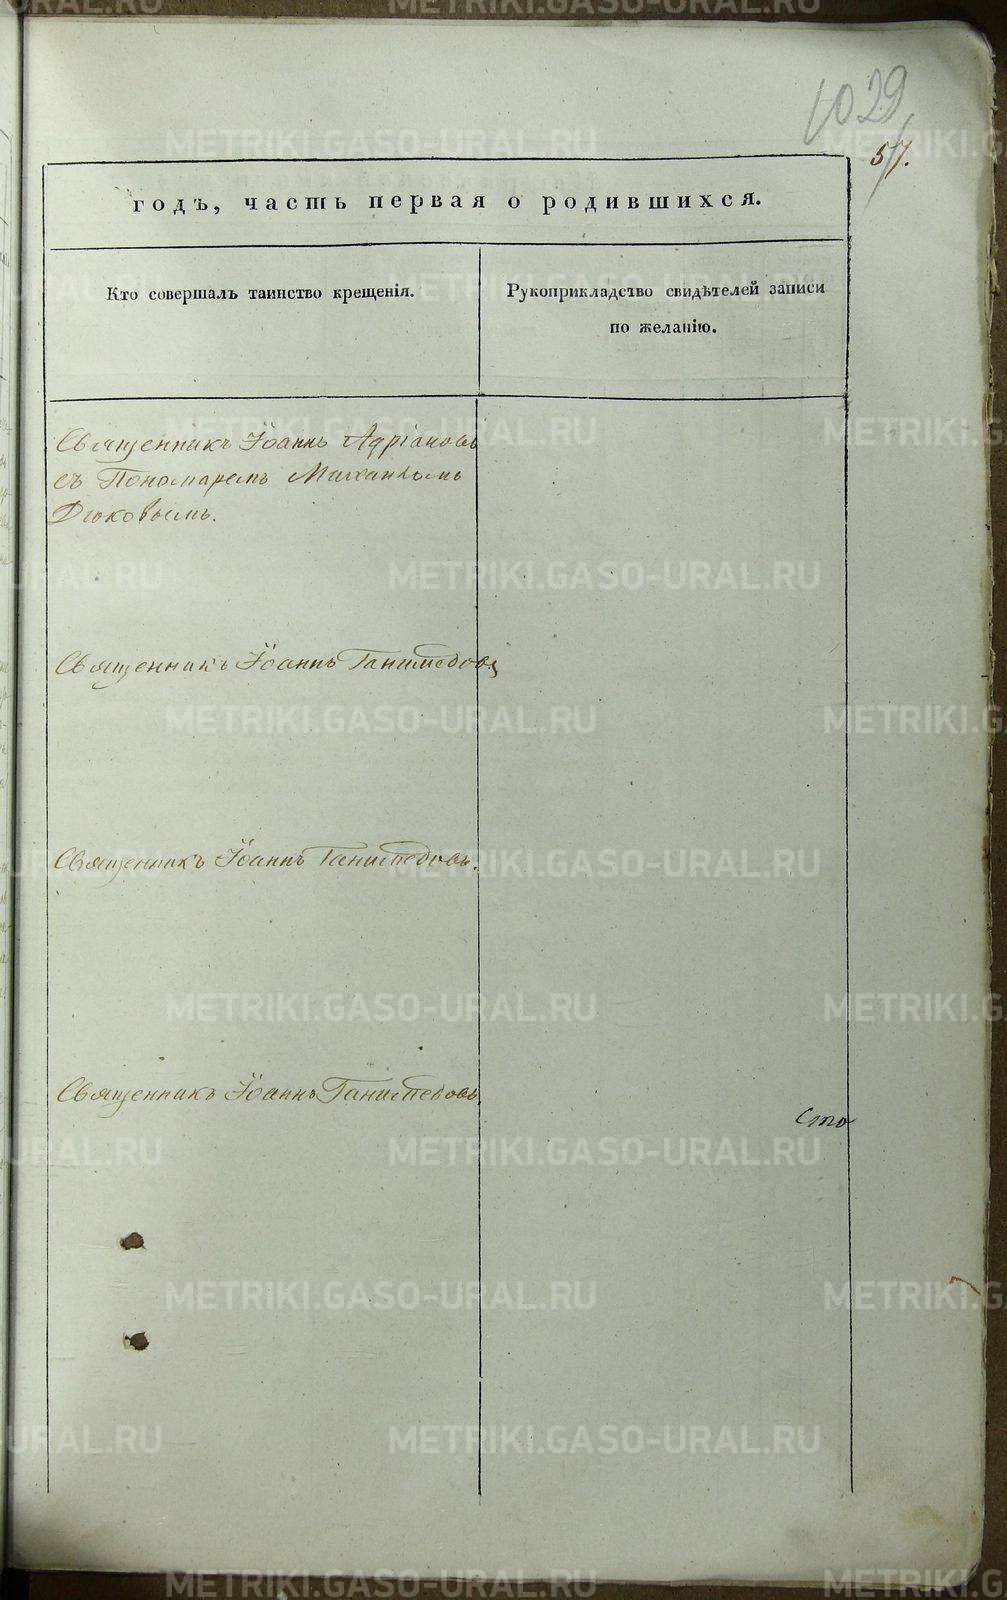 1029
57.
годъ, часть первая о родившихся.
Кто совершалъ таинство крещенія.
Рукоприкладство свидѣтелей записи
по желанію.
Священникъ Іоаннъ Адріановъ
съ Пономаремъ Михаиломъ
Дюковымъ.
Священникъ Іоаннъ Ганимедовъ
Священникъ Іоаннъ Ганимедовъ.
Священникъ Іоаннъ Ганимедовъ.
Сто
METRIKI.GASO-URAL.RU